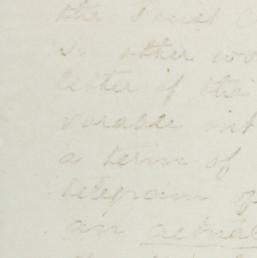 the
In other wo
letter of the
variable int
a term of
telegram of
an actual